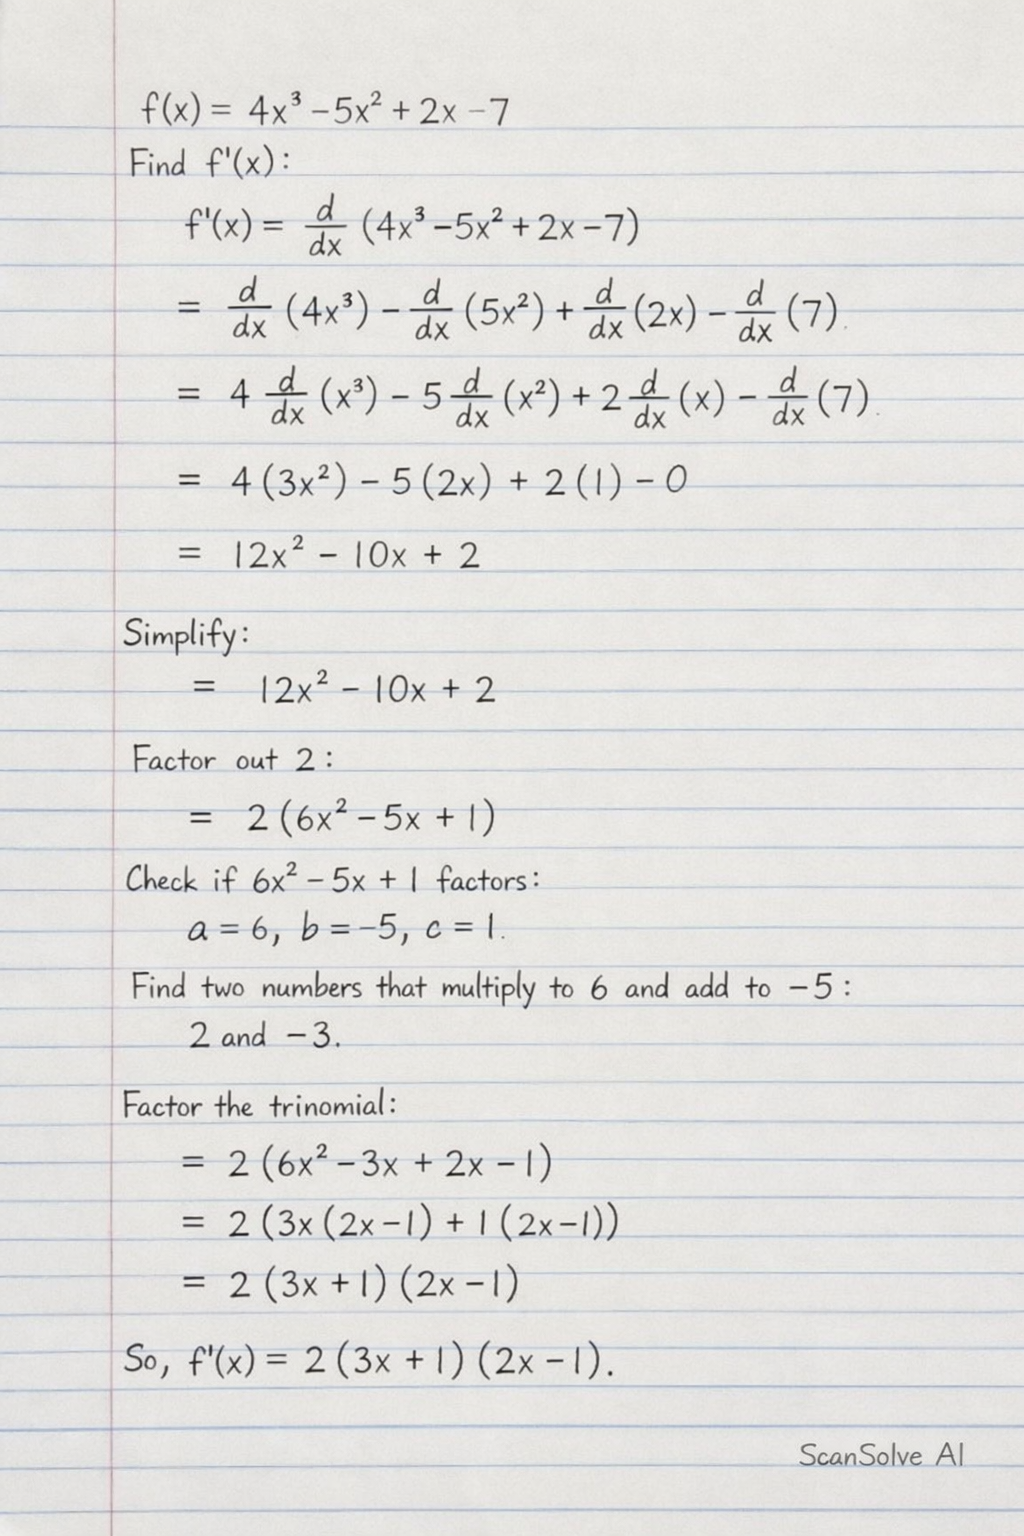 f(x) = 4x³ − 5x² + 2x − 7
Find f'(x):
f'(x) = d/dx (4x³ − 5x² + 2x − 7)
= d/dx (4x³) − d/dx (5x²) + d/dx (2x) − d/dx (7).
= 4 d/dx (x³) − 5 d/dx (x²) + 2 d/dx (x) − d/dx (7).
= 4(3x²) − 5(2x) + 2(1) − 0
= 12x² − 10x + 2
Simplify:
= 12x² − 10x + 2
Factor out 2:
= 2(6x² − 5x + 1)
Check if 6x² − 5x + 1 factors:
a = 6, b = −5, c = 1.
Find two numbers that multiply to 6 and add to −5:
2 and −3.
Factor the trinomial:
= 2(6x² − 3x + 2x − 1)
= 2(3x(2x − 1) + 1(2x − 1))
= 2(3x + 1)(2x − 1)
So, f'(x) = 2(3x + 1)(2x − 1).
ScanSolve AI